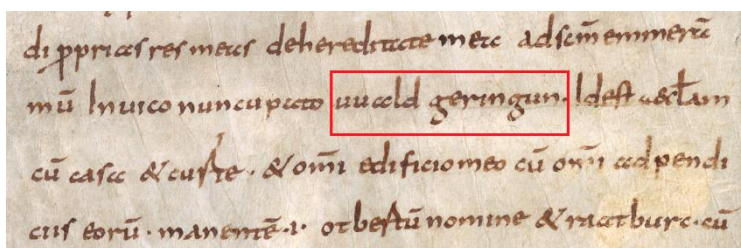 di ꝓprias res meas dehereditate mea adsc̄m emmerā
mū Inuico nuncupato uuald geringun. Idest aecl̄am
cū casa & curte · & om̄i edificiomeo cū om̄i adpendi
ciis eorū · manentē ·i· otbertū nomine & ratburc · cū